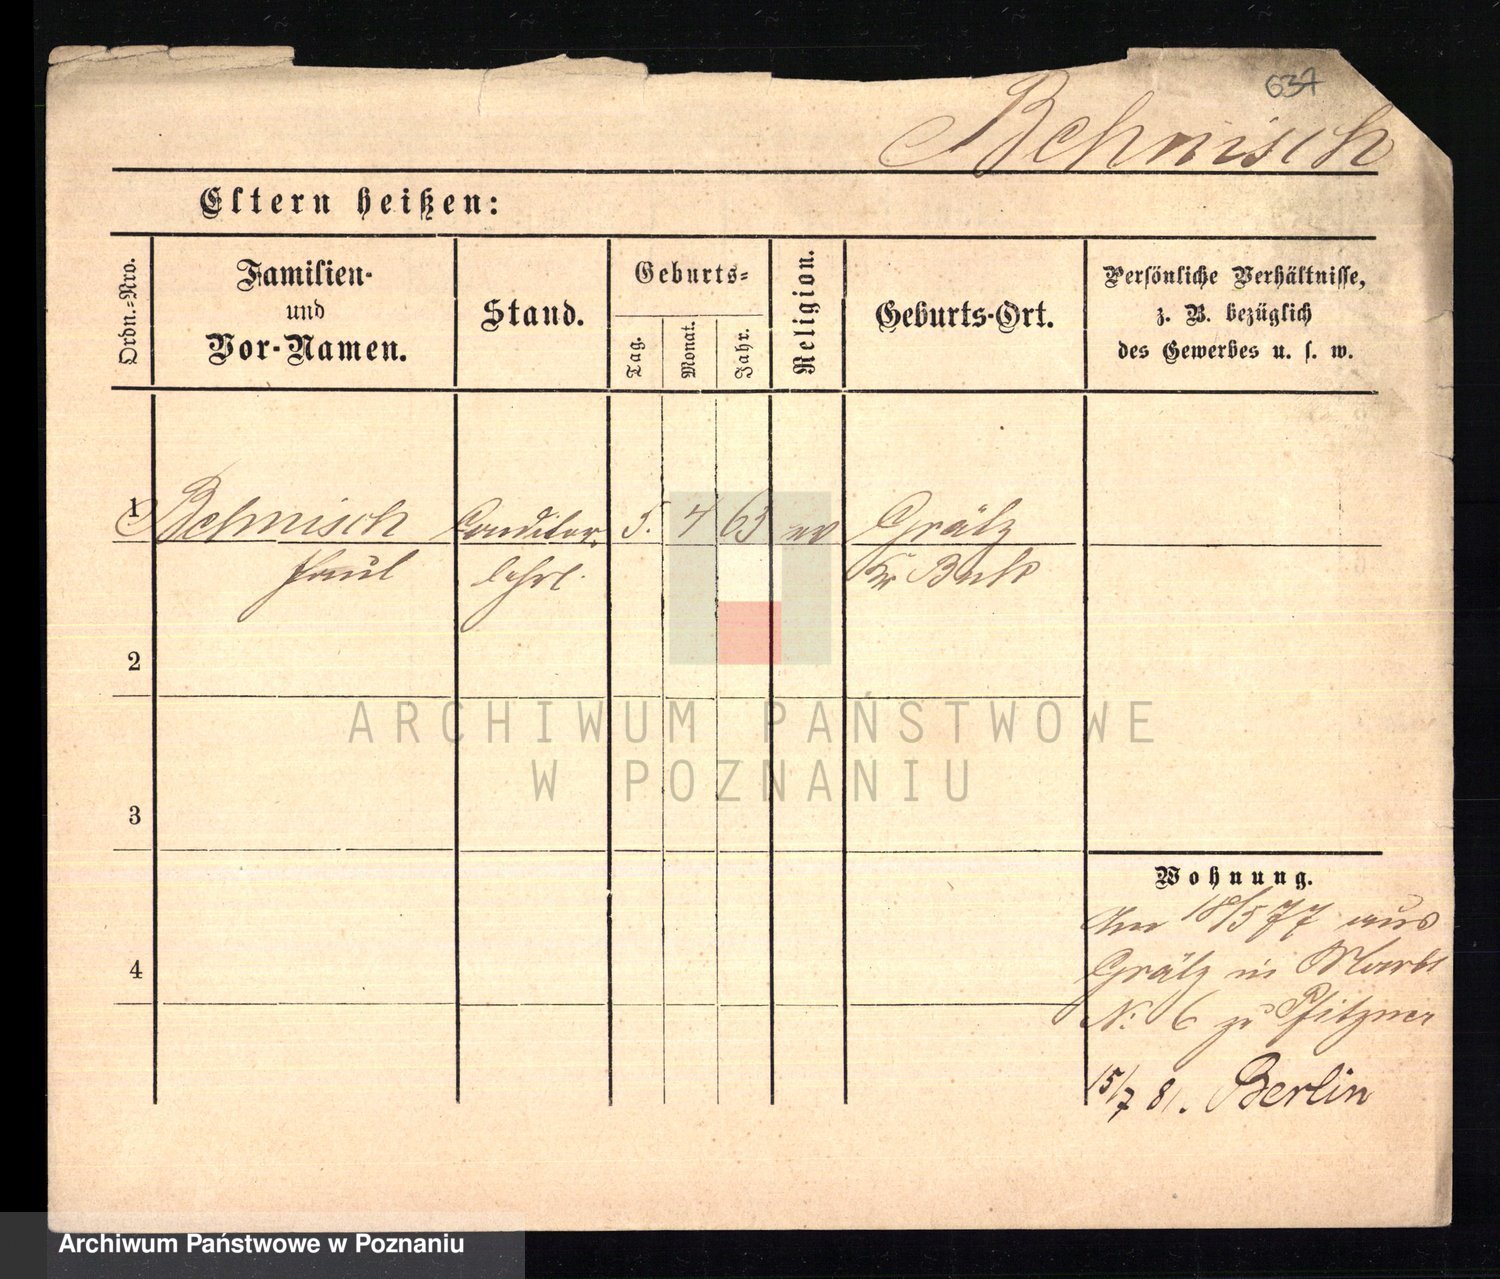 637
Behnisch
Eltern heißen:
Ordn.-Nro.
Familien-
und
Vor-Namen.
Stand.
Geburts-
Tag.
Monat.
Jahr.
Religion.
Geburts-Ort.
Persönliche Verhältnisse,
z. B. bezüglich
des Gewerbes u. s. w.
1 Behnisch Conditor 5. 4 63 ev Grätz
Paul lehrl. Kr Buk
2
3
4
Wohnung.
Am 18/5 77 aus
Grätz in Markt
N: 6 zu Pfitzner
15/7 81. Berlin
ARCHIWUM PAŃSTWOWE
W POZNANIU
Archiwum Państwowe w Poznaniu